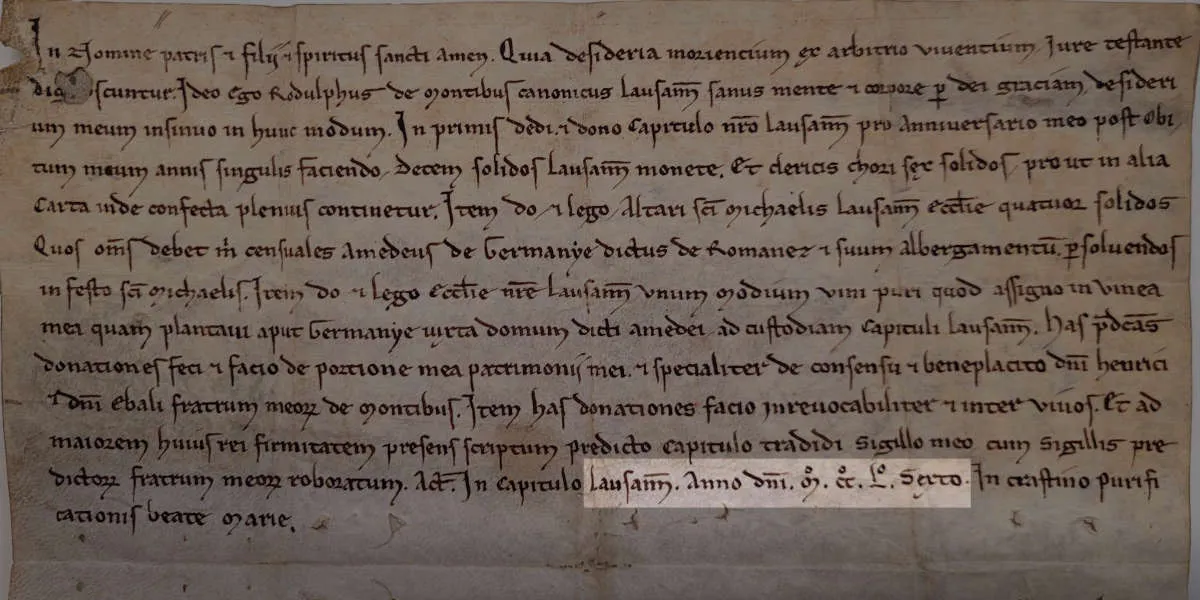 In Nomine patris ⁊ filii ⁊ spiritus sancti amen. Quia desideria moriencium ex arbitrio viventium Iure testante
scuntur. Ideo Ego Rodulphus de Montibus canonicus Lausan̄ sanus mente ⁊ corpore ꝑ dei graciam, desideri
um meum insinuo in hunc modum. In primis dedi. ⁊ dono Capitulo nr̄o Lausan̄ pro Anniversario meo post Obi
tum meum annis singulis faciendo, Decem solidos Lausan̄ monete. Et clericis chori sex solidos, pro ut in alia
Carta inde confecta plenius continetur. Item do ⁊ lego Altari sc̄i Michaelis Lausan̄ Eccl̄ie quatuor solidos
Quos om̄s debet m̄ censuales Amedeus de Germanye dictus de Romanez ⁊ suum albergamentū. ꝑsolvendos
in festo sc̄i Michaelis. Item do ⁊ lego Eccl̄ie nr̄e Lausan̄ vnum modium vini puri quod assigno in vinea
mea quam plantavi aput Germanye iuxta domum dicti amedei ad custodiam Capituli Lausan̄. has p̄dc̄as
donationes feci ⁊ facio de portione mea patrimonii mei. ⁊ specialiter de consensu ⁊ beneplacito dn̄i henrici
⁊ dn̄i Ebali fratrum meoꝝ de Montibus. Item has donationes facio inrevocabiliter ⁊ inter vivos. Et ad
maiorem huius rei firmitatem presens scriptum predicto Capitulo tradidi sigillo meo cum sigillis pre
dictoꝝ fratrum meoꝝ roboratum. Act̄. In Capitulo Lausan̄. Anno dn̄i. M̊. CC̊. L̊. Sexto. In crastino Purifi
cationis beate Marie.